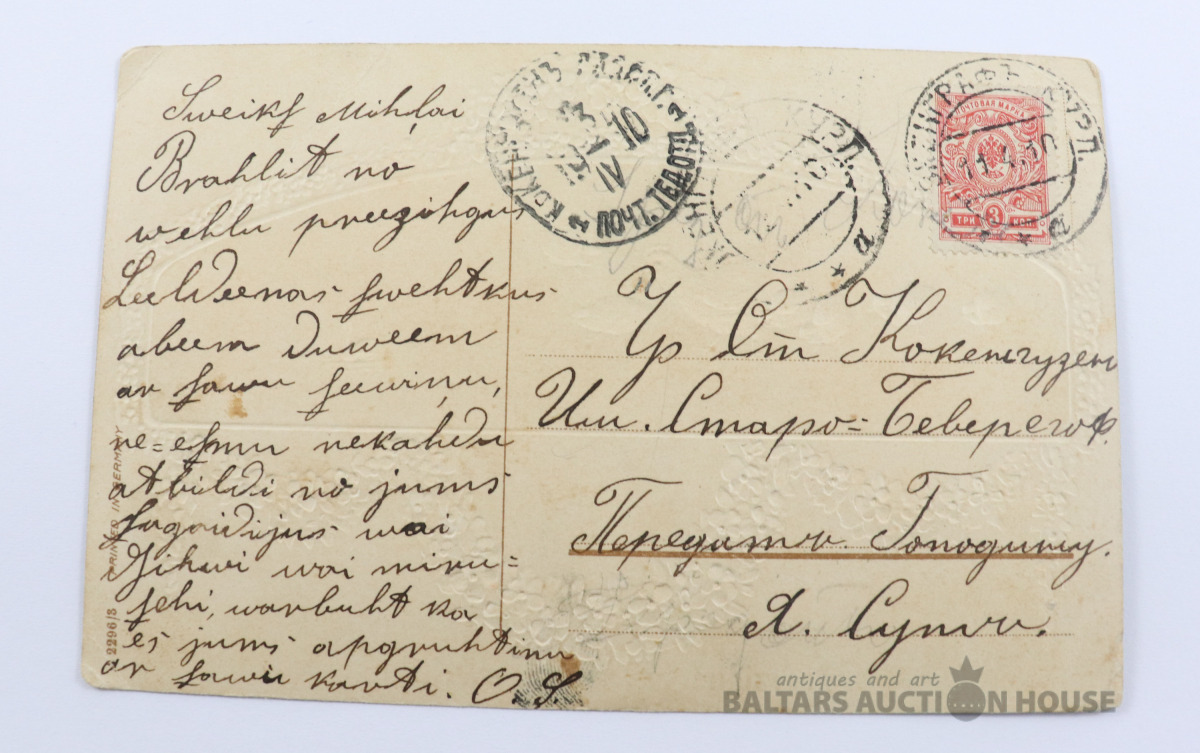 Sweiks Mihļai
Brahlit no
wehlu preezihgus
Leeldeenas swehtkus
abeem Duweem
ar sawu seewiņu,
ne=esmu nekahdu
atbildi no jums
sagaidijus wai
dsihwi wai miru=
schi, warbuht ka
es jums apgruhtinu
ar sawu karti. O. S.
PRINTED IN GERMANY
2296/3
КОКЕНГУЗЕНЪ
13 IV 10
ПОЧТ. ТЕЛ. ОТД.
КУРЛ.
10
а
КУРЛ.
11.4.10
а
ПОЧТОВАЯ МАРКА
ТРИ 3 КОП.
Ур Ст Кокенгузенъ
Им. Старо=Беверсгоф.
Передать. Господину.
Я.
antiques and art
BALTARS AUCTION HOUSE